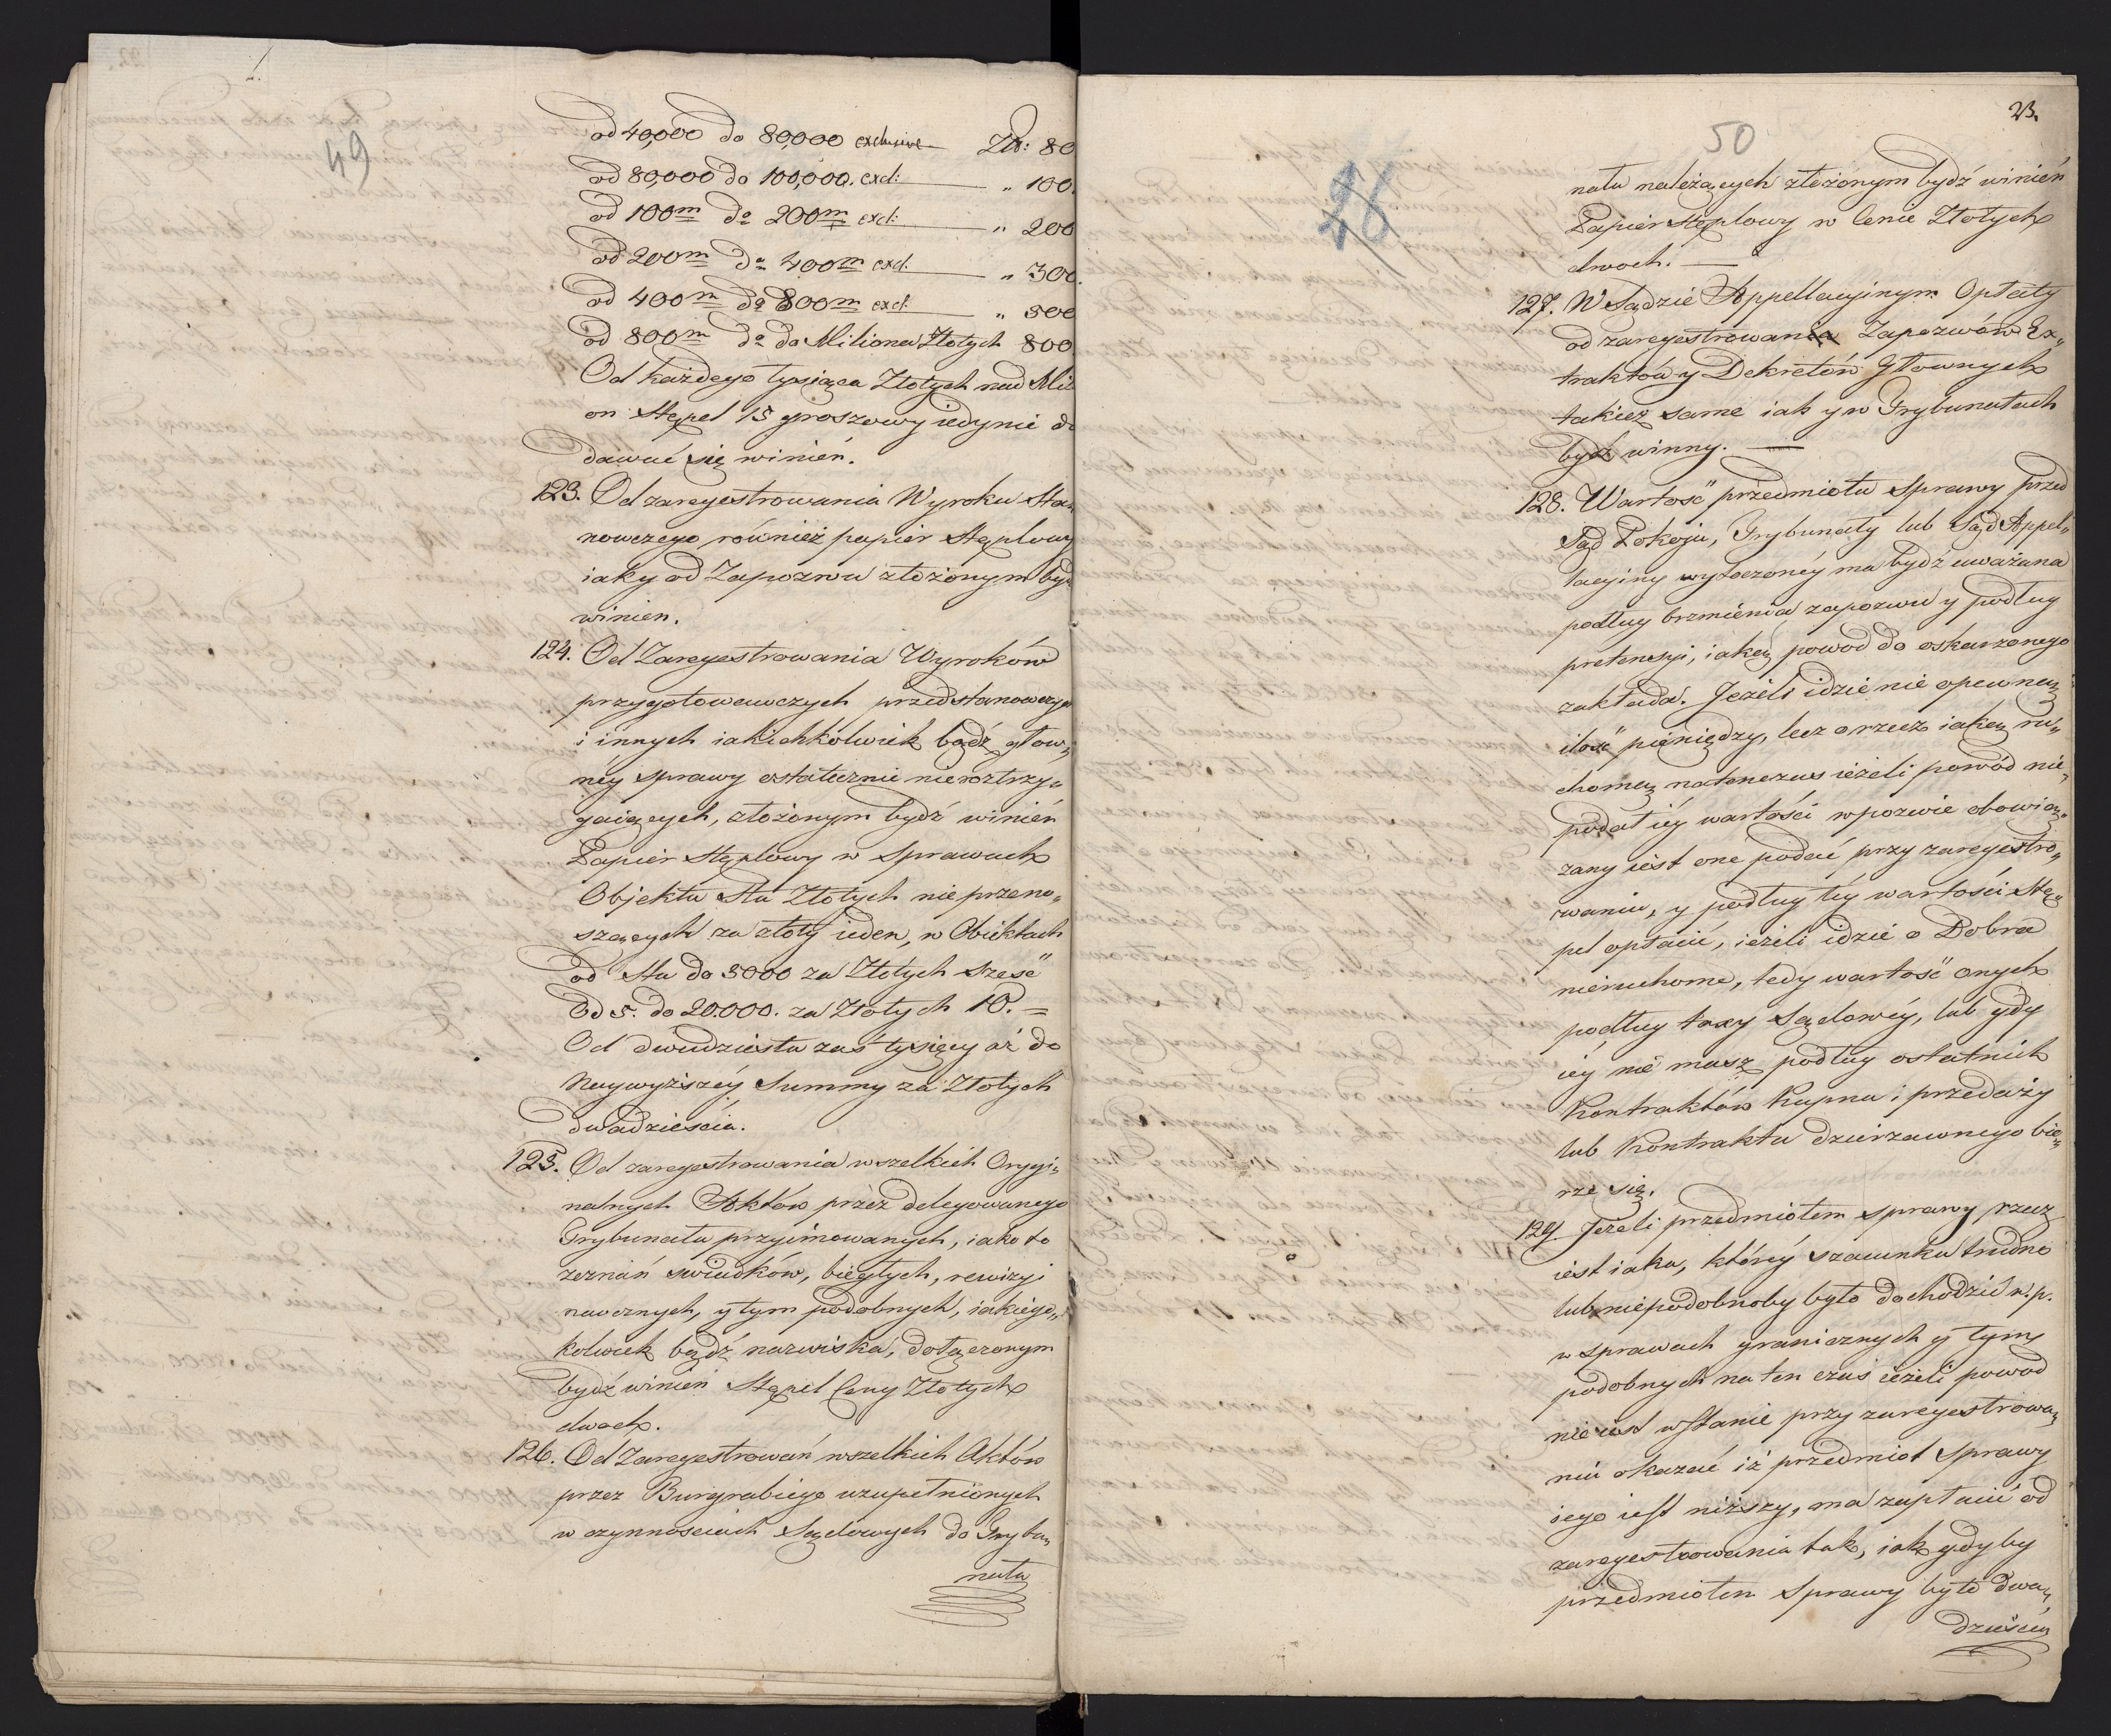 49
od 40,000 do 80,000 exclusive — Zło: 80
od 80,000 do 100,000. excl: — „ 100.
od 100m do 200m excl: — „ 200
od 200m do 400m excl. — „ 300.
od 400m do 800m excl: — „ 500
od 800m do do Miliona Złotych 800
Od każdego tysiąca Złotych nad Mili
on Stępel 15 groszowy iedynie do
dawać się winień.
123. Od zaregestrowania Wyroku Sta
nowczego również papier Stęplowy
iaky od Zapozwu złożonym bydź
winien.
124. Od Zaregestrowania Wyroków
przygotowawczych przedstanowczych
i innych iakichkolwiek bądź głow„
néy sprawy ostatecznie nieroztrzy„
gaiących, złożonym bydź winień
Papier Stęplowy w Sprawach
Objektu Sta Złotych nie przeno„
szących za złoty ieden, w Obiektach
od Sta do 5000 za Złotych sześć
Od 5. do 20.000. za Złotych 10. =
Od dwudziestu zaś tysięcy aż do
Naywyższéy Summy za Złotych
dwadzieścia.
125. Od zaregestrowania wszelkich Orygi„
nalnych Aktów przez delegowanego
Trybunału przyimowanych, iako to
zeznań swiadków, biegłych, rewizyi
naocznych, y tym podobnych, iakiego„
kolwiek bądź nazwiska, dołączonym
bydź winień Stępel Ceny Złotych
dwoch.
126. Od Zaregestrowań wszelkich Aktów
przez Burgrabiego uzupełnionych
w czynnosciach Sądowych do Trybu„
nału
23.
50
26
nału należących złożonym bydź winień
Papier Stęplowy w Cenie Złotych
dwoch. —
127. W Sądzie Appellacyinym Opłaty
od zaregestrowania Zapozwów Ex„
traktów y Dekretów Głownych
takież same iak y w Trybunałach
bydź winny. —
128. Wartość przedmiotu sprawy przed
Sąd Pokoju, Trybunały lub Sąd Appel„
lacyiny wytoczonéy ma bydź uważana
podług brzmienia zapozwu y podług
pretensyi, iaką powod do oskarzonego
zakłada. Jeżeli idzie nie o pewną
ilość pieniędzy, lecz o rzecz iaką ru„
chomą natenczas ieżeli powód nie„
podał iéy wartości w pozwie obowią„
zany iest one podać przy zaregestro„
waniu, y podług téy wartości Stę„
pel opłacić, ieżeli idzie o Dobra
nieruchome, tedy wartość onych
podług taxy Sądowéy, lub gdy
iéy nie masz podług ostatnich
Kontraktów Kupna i przedaży
lub Kontraktu dzierzawnego bie„
rze się.
129. Jeżeli przedmiotem sprawy rzecz
iest iaka, któréy szacunku trudno
lub niepodobnoby było dochodzić n.p.
w sprawach granicznych y tym
podobnych na ten czas ieżeli powod
nie iest w stanie przy zaregestrowa„
niu okazać iż przedmiot Sprawy
iego iest niższy, ma zapłacić od
zaregestrowania tak, iak gdyby
przedmiotem Sprawy było dwa„
dzieścia